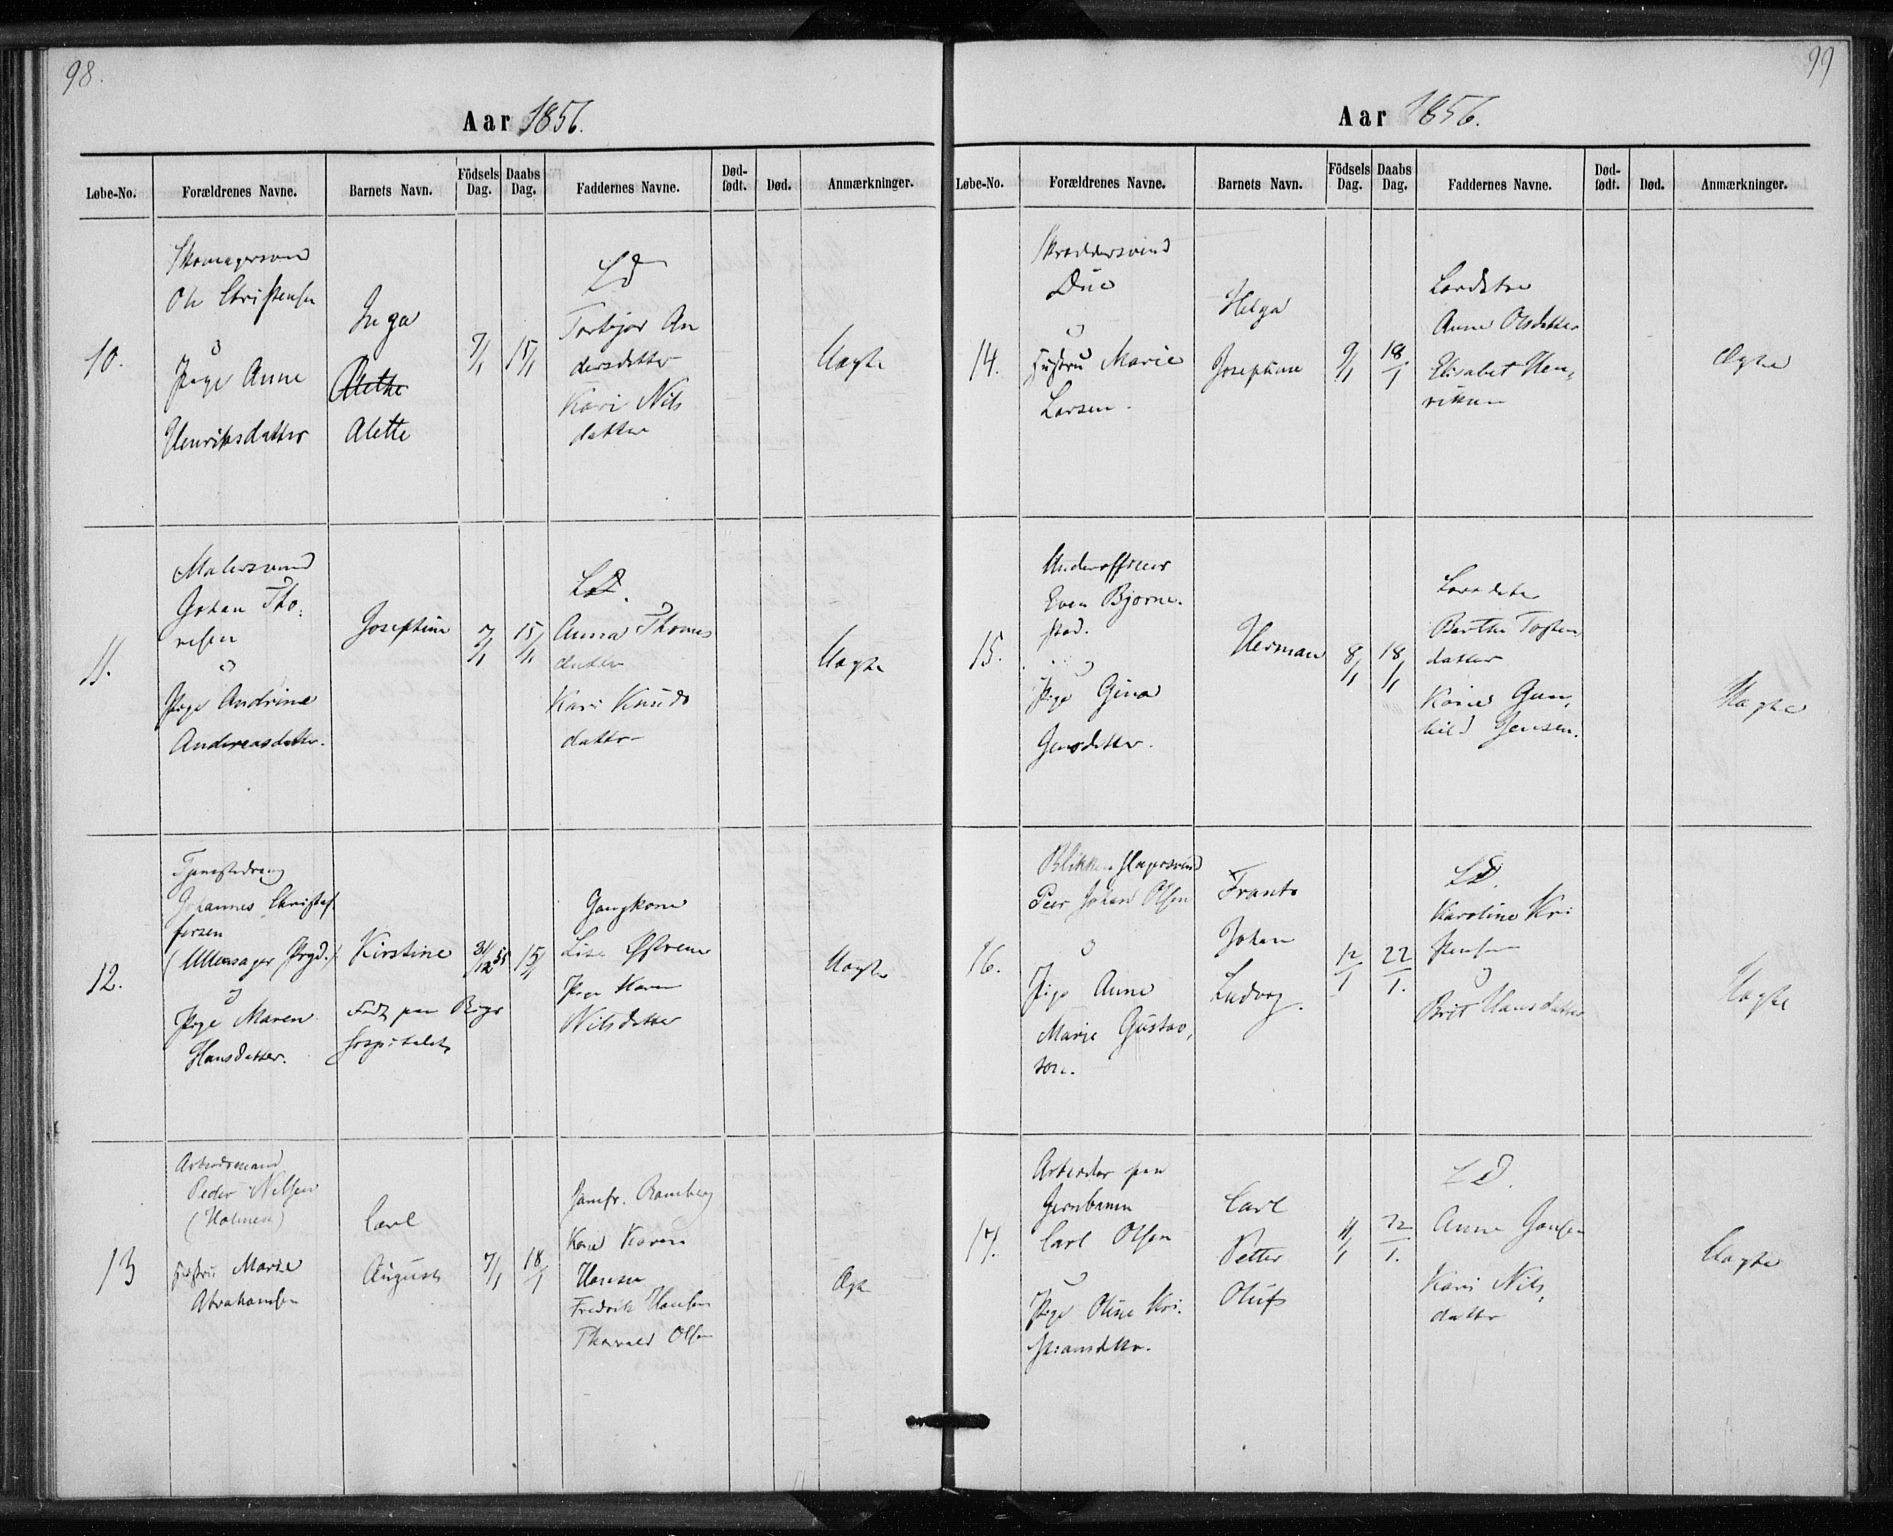 98.
Aar 1856.
Løbe-No. Forældrenes Navne. Barnets Navn. Födsels Dag. Daabs Dag. Faddernes Navne. Død-født. Død. Anmærkninger.
10.
Skomagersvend
Ole Christensen
o
Pige Anne
Henriksdatter
Inga
Alethe
Alette
7/1
15/1
LD
Torbjør An
dersdatter
Kari Nils
datter
Uægte
11.
Malersvend
Johan Tho-
resen
o
Pige Andrine
Andreasdatter.
Josephine
7/1
15/1
LD.
Anna Thomas
datter
Kari Knuds
datter
Uægte
12.
Tjenestedreng
Johannes Christof
fersen
(Ullensager Prgd.)
o
Pige Maren
Hansdatter.
Kirstine
Født paa Rigs
hospitalet
31/12 55
15/1
Gangkone
Lise Østvene
Pige Karen
Nilsdatter
Uægte
13
Arbeidsmand
Peder Nelsen
(Holmen)
Hustru Marie
Abrahamsen
Carl
August
7/1
18/1
Jomfr. Ramberg
Kone Karen
Hansen
Fredrik Hansen
Thorvald Olsen
Ægte
99
Aar 1856.
Løbe-No. Forældrenes Navne. Barnets Navn. Födsels Dag. Daabs Dag. Faddernes Navne. Død-født. Død. Anmærkninger.
14.
Skræddersvend
Due
o
Hustru Marie
Larsen.
Helga
Josephine
9/1
18/1
Jordeλ
Anne Olsdatter
Elisabet Hen-
riksen
Ægte
15.
Underofficer
Even Bjørne-
stad.
o
Pige Gina
Jensdatter.
Herman
8/1
18/1
Berthe Tosten
datter
Kone Gun-
hild Jensen.
Uægte
16.
Blikkenslagersvend
Peer Johan Olsen
o
Pige Anne
Marie Gustav-
son.
Frants
Johan
Ludvig.
12/1
22/1.
LD.
Karoline Kri
stensen
o
Brit Hansdatter
Uægte
17.
Arbeider paa
Jernbanen
Carl Olsen
o
Pige Oline Kri-
stiansdtter.
Carl
Petter
Oluf
4/1
22/1.
LD.
Anne Jonsen
Kari Nils-
datter
Uægte